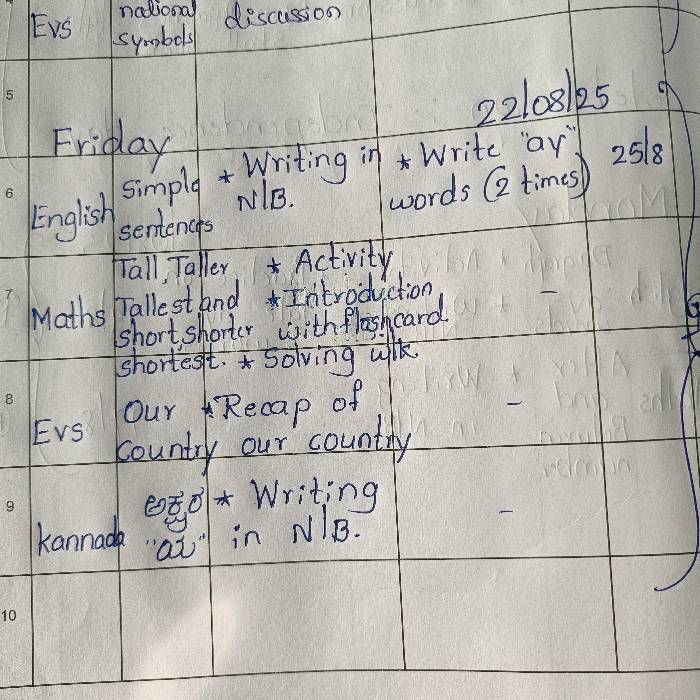 Evs national discussion
symbols
5
22/08/25
Friday
6 English Simple * Writing in * Write "ay" 25/8
sentences N/B. words (2 times)
7 Maths Tall, Taller * Activity -
Tallest and * Introduction
short, shorter with flashcard
shortest. * Solving w/k
8 Evs Our * Recap of -
Country our country
9 kannada ಅಕ್ಷರ * Writing -
in N/B.
10